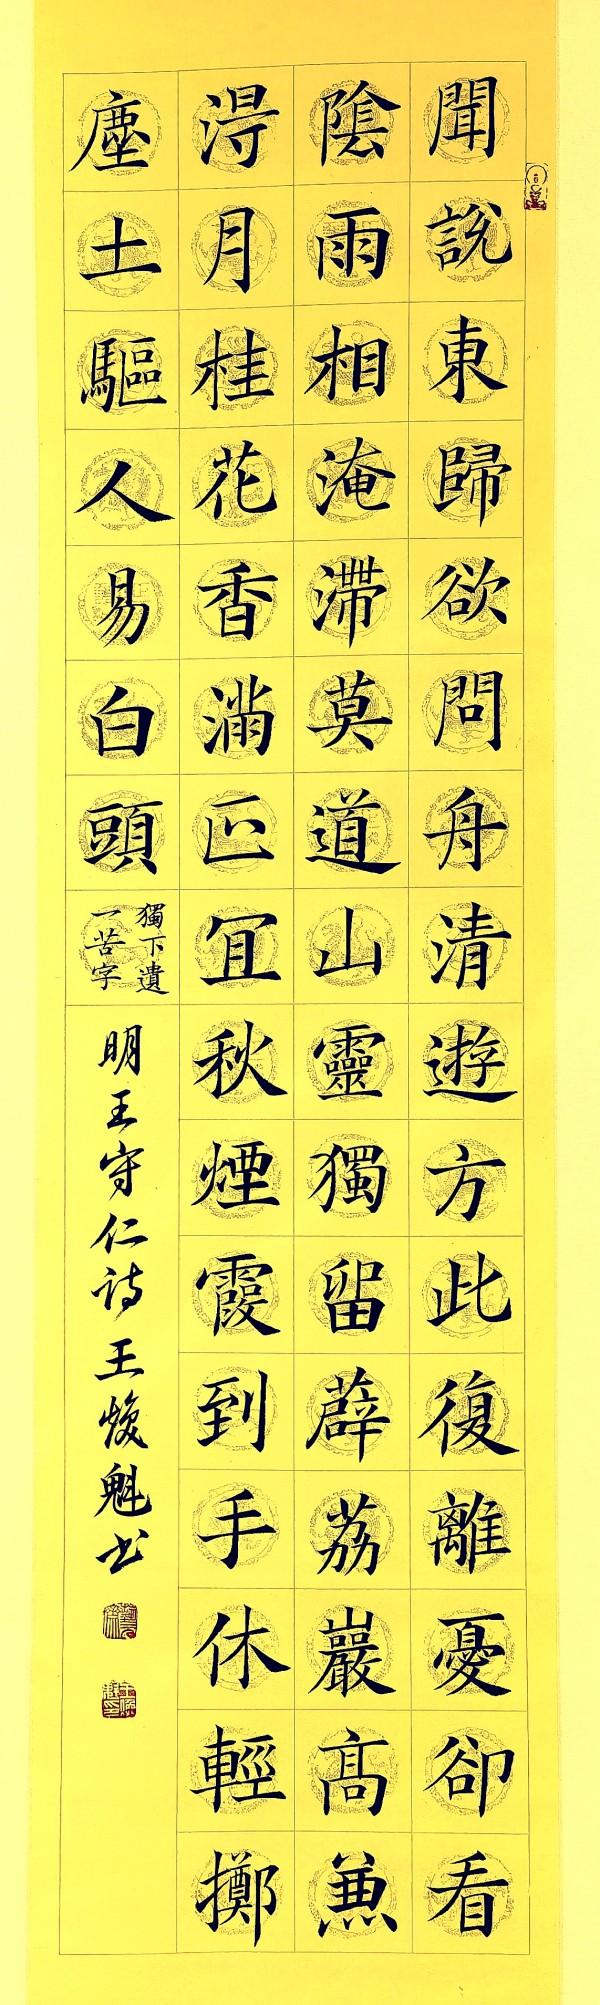 聞說東歸欲問舟清遊方此復離憂卻看
陰雨相淹滯莫道山靈獨留薜荔巖高兼
得月桂花香滿正宜秋煙霞到手休輕擲
塵土驅人易白頭
獨下遺
一苦字
明王守仁诗王焌魁书